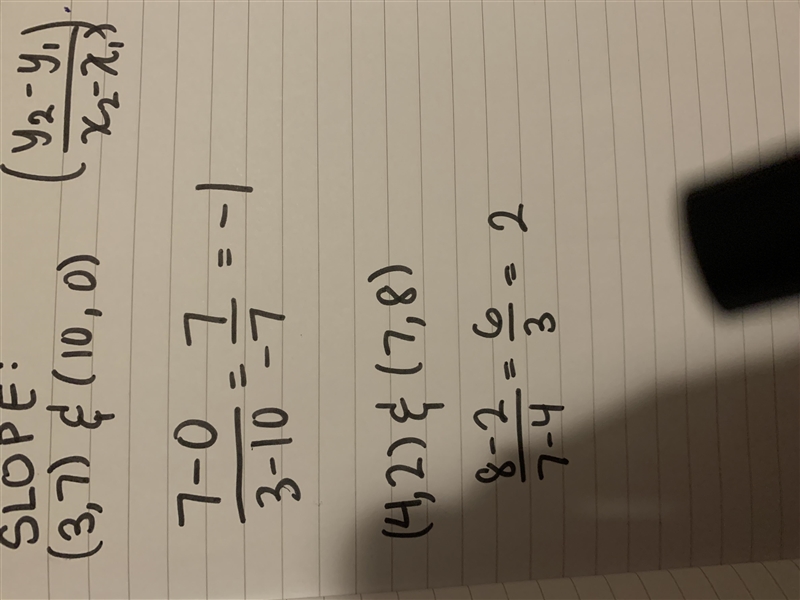 SLOPE:
(3,7) & (10,0) (y₂-y₁)/(x₂-x₁)
7-0/3-10 = 7/-7 = -1
(4,2) & (7,8)
8-2/7-4 = 6/3 = 2